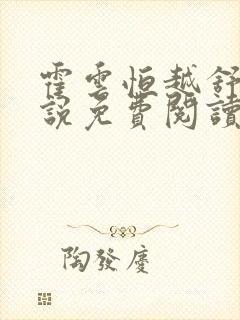 霍雲恒越舒
說免費閱讀
陶發慶